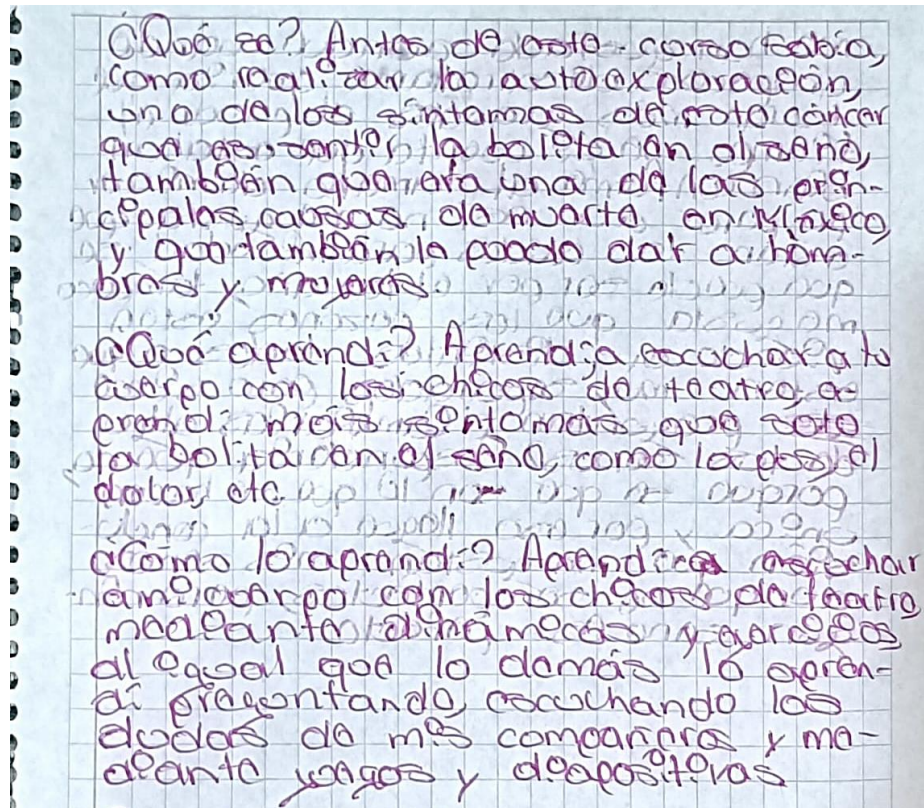 ¿Qué sé? Antes de este curso sabía,
como realizar la autoexploración,
uno de los síntomas de este cáncer
que es sentir la bolita en el seno,
también que era una de las prin-
cipales causas de muerte en México
y que también le puede dar a hom-
bres y mujeres
¿Qué aprendí? Aprendí a escuchar a tu
cuerpo con los chicos de teatro, a-
prendí más síntomas que este
la bolita en el seno, como la pus, el
dolor, etc
¿Cómo lo aprendí? Aprendí a escuchar
a mi cuerpo con los chicos de teatro
mediante dinámicas y ejercicios
al igual que lo demás lo apren-
dí preguntando, escuchando las
dudas de mis compañeros y me-
diante juegos y diapositivas